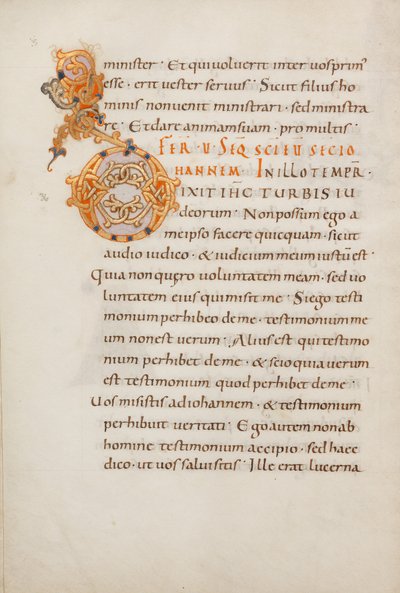 minister · Et qui voluerit inter vos prim
esse · erit vester servus · Sicut filius ho
minis non venit ministrari · sed ministra
re · Et dare animam suam · pro multis ·
FER · V · SEQ SCI EU SECD IO
HANNEM · IN ILLO TEMPR ·
IXIT IHC TURBIS IU
deorum · Non possum ego a
me ipso facere quicquam · sicut
audio iudico · & iudicium meum iustū est ·
Quia non quęro voluntatem meam · sed vo
luntatem eius qui misit me · Si ego testi
monium perhibeo de me · testimonium me
um non est verum · Alius est qui testimo
nium perhibet de me · & scio quia verum
est testimonium quod perhibet de me ·
Uos misistis ad iohannem · & testimonium
perhibuit veritati · Ego autem non ab
homine testimonium accipio · sed haec
dico · ut vos salvi sitis · Ille erat lucerna